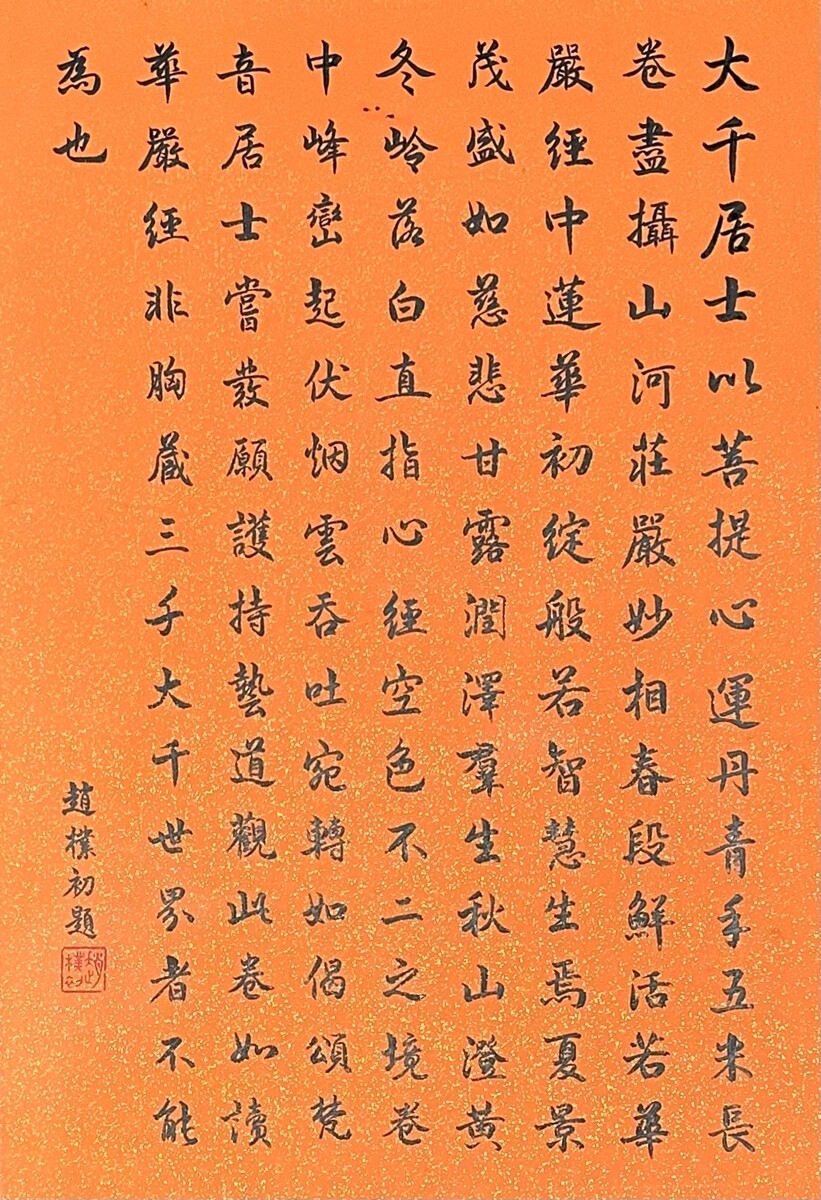 大千居士以菩提心運丹青手五米長
卷盡攝山河莊嚴妙相春段鮮活若華
嚴經中蓮華初綻般若智慧生焉夏景
茂盛如慈悲甘露潤澤羣生秋山澄黃
冬岭落白直指心經空色不二之境卷
中峰巒起伏烟雲吞吐宛轉如偈頌梵
音居士嘗發願護持藝道觀此卷如讀
華嚴經非胸藏三千大千世界者不能
為也
趙樸初題
趙樸初